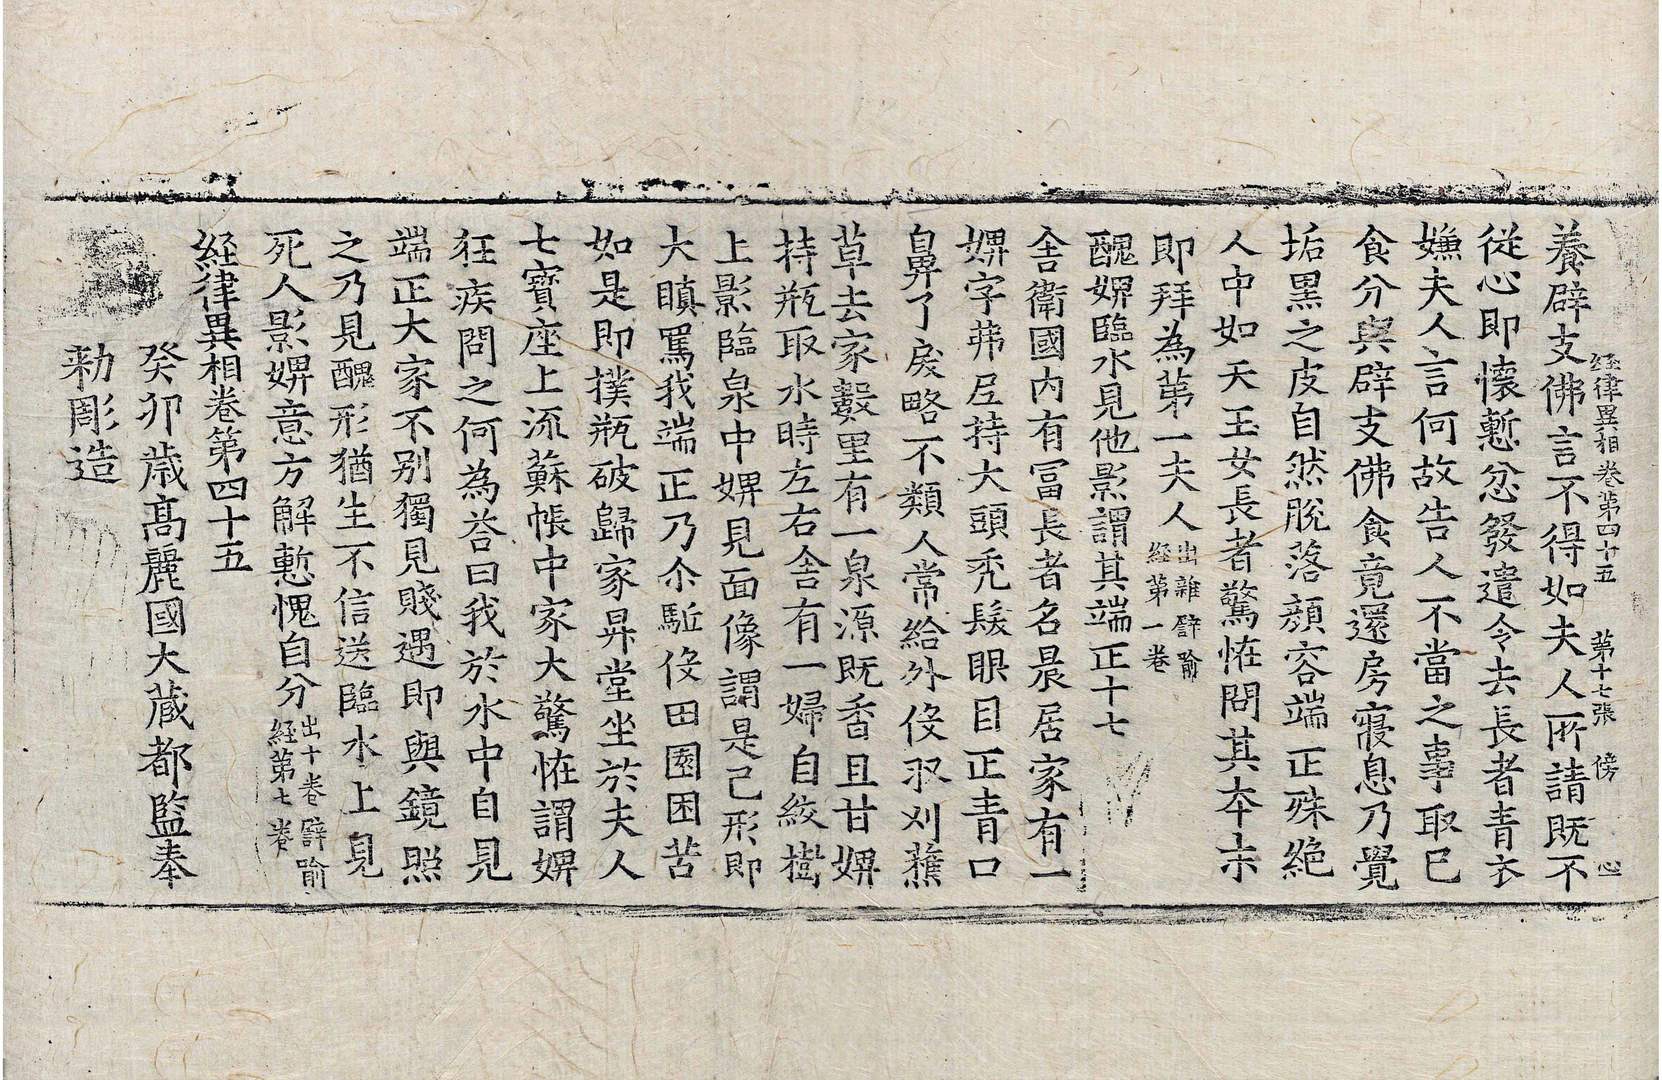 経律異相卷第四十五 第十七張 傍 心
養辟支佛言不得如夫人所請既不
從心即懷慙忿發遣令去長者青衣
嫌夫人言何故告人不當之事取已
食分與辟支佛食竟還房寢息乃覺
垢黒之皮自然脫落顏容端正殊絶
人中如天玉女長者驚恠問其本末
即拜為第一夫人出雜譬喻経第一卷
醜婢臨水見他影謂其端正十七
舍衛國內有冨長者名晨居家有一
婢字茀𡰱持大頭禿髮眼目正青口
鼻了戾略不類人常給外伇収刈蕉
草去家數里有一泉源既香且甘婢
持瓶取水時左右舍有一婦自絞樹
上影臨泉中婢見面像謂是己形即
大瞋罵我端正乃尒駈伇田園困苦
如是即撲瓶破歸家昇堂坐於夫人
七寶座上流蘇帳中家大驚恠謂婢
狂疾問之何為荅曰我於水中自見
端正大家不別獨見賤遇即與鏡照
之乃見醜形猶生不信送臨水上見
死人影婢意方解慙愧自分出十卷譬喻経第七卷
経律異相卷第四十五
癸卯歲高麗國大藏都監奉
勑彫造